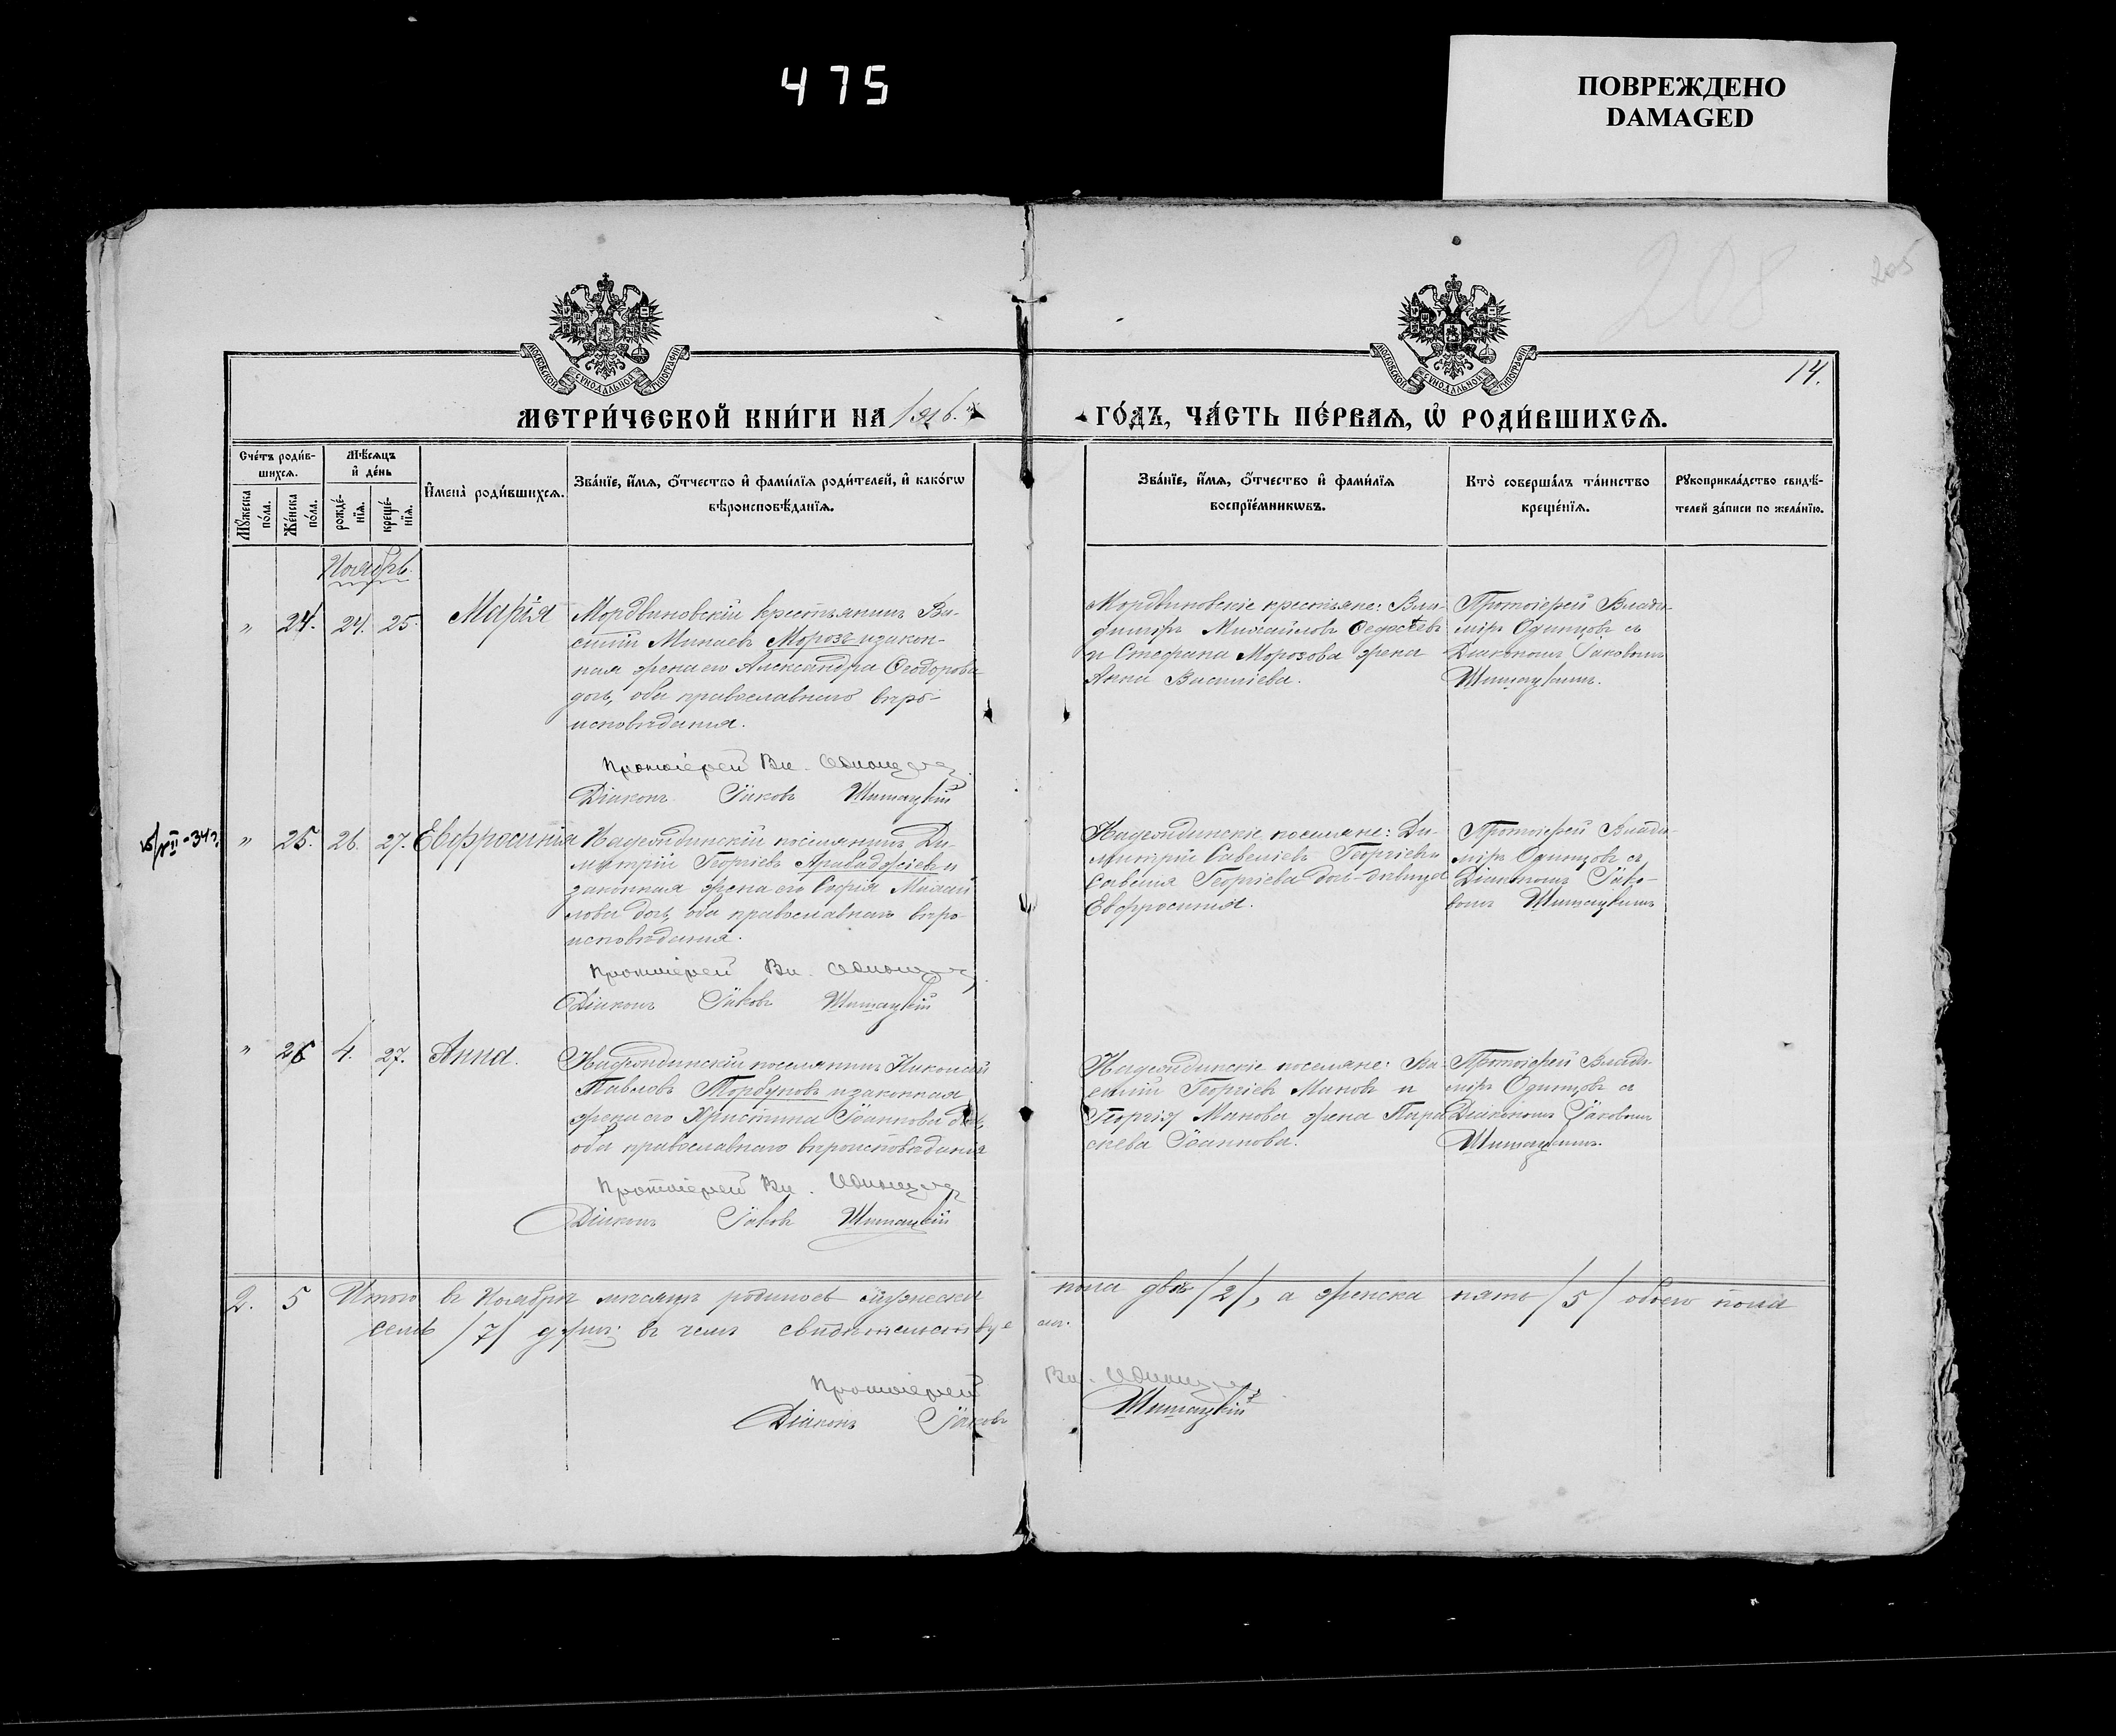 475
ПОВРЕЖДЕНО
DAMAGED
208
205
14.
МОСКОВСКОЙ СѴНОДАЛЬНОЙ ТИПОГРАФІИ
МОСКОВСКОЙ СѴНОДАЛЬНОЙ ТИПОГРАФІИ
МЕТРИ́ЧЕСКОЙ КНИ́ГИ НА 1916.
ГО́ДЪ, ЧА́СТЬ ПЕ́РВАЯ, Ѡ҆ РОДИ́ВШИХСЯ.
Сче́тъ роди́в-
шихсѧ.
Мꙋ́жеска
по́ла.
Же́нска
по́ла.
Мѣ́сѧцъ
и҆ де́нь
рожде́-
нїѧ.
креще́-
нїѧ.
И҆мена̀ роди́вшихсѧ.
Зва́нїе, и҆́мѧ, ѻ҆́тчество и҆ фами́лїѧ роди́телей, и҆ како́гѡ
вѣроисповѣ́данїѧ.
Зва́нїе, и҆́мѧ, ѻ҆́тчество и҆ фами́лїѧ
воспрїе́мникѡвъ.
Кто̀ соверша́лъ та́инство
креще́нїѧ.
Рꙋкоприкла́дство свидѣ́-
телей за́писи по жела́нїю.
Ноябрь.
" 24. 24. 25. Марія
Мордвиновскій крестьянинъ Ва-
силій Минаевъ Морозъ и закон-
ная жена его Александра Ѳеодорова
дочь, оба православнаго вѣро-
исповѣданія.
Протоіерей Вл. Одинцовъ
Діаконъ Іаковъ Шишацкій
Мордвиновскіе крестьяне: Вла-
димиръ Михайловъ Ѳедосѣевъ
и Стефана Морозова жена
Анна Василіева.
Протоіерей Влади-
міръ Одинцовъ съ
Діакономъ Іаковомъ
Шишацкимъ.
" 25. 26. 27. Евфросинія
Надеждинскій поселянинъ Ди-
митрій Георгіевъ Арабаджіевъ и
законная жена его Софія Михай
лова дочь, оба православнаго вѣро-
исповѣданія.
Протоіерей Вл. Одинцовъ
Діаконъ Іаковъ Шишацкій
Надеждинскіе поселяне: Ди-
митрій Савеліевъ Георгіевъ и
Савелія Георгіева дочь-дѣвица
Евфросинія.
Протоіерей Влади-
міръ Одинцовъ съ
Діакономъ Іако-
вомъ Шишацкимъ
" 26 4. 27. Анна.
Надеждинскій поселянинъ Николай
Павловъ Торбуновъ и законная
жена его Христина Іоаннова дочь,
оба православнаго вѣроисповѣданія
Протоіерей Вл. Одинцовъ
Діаконъ Іаковъ Шишацкій
Надеждинскіе поселяне: Ва-
силій Георгіевъ Мановъ и
Георгія Манова жена Пара
скева Іоаннова.
Протоіерей Влади-
міръ Одинцовъ съ
Діакономъ Іаковомъ
Шишацкимъ.
2. 5 Итого въ Ноябрѣ мѣсяцѣ родилось мужеска пола два /2/, а женска пять /5/ обоего пола
семь /7/ душъ; въ чемъ свидѣтельствуемъ.
Протоіерей Вл. Одинцовъ
Діаконъ Іаковъ Шишацкій